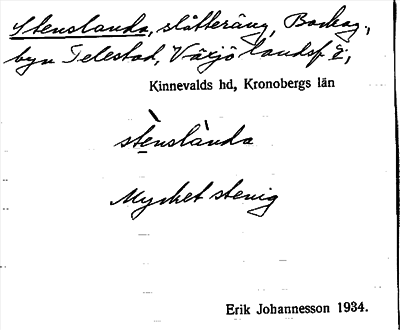 Stenslanda, slåtteräng, Backag.,
byn Telestad, Växjö landsf.
Kinnevalds hd, Kronobergs län
stènslànda
Mycket stenig
Erik Johannesson 1934.